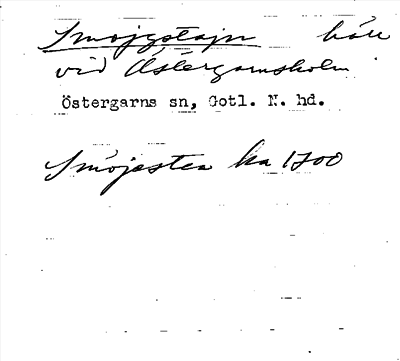 Smojgstajn häll
vid Östergarnsholm
Östergarns sn, Gotl. N. hd.
Smöjesten ka 1700